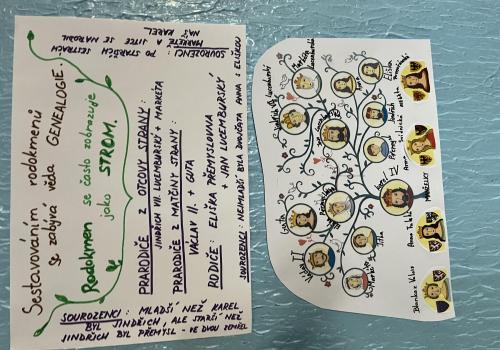 Sestavováním rodokmenů
se zabývá věda
GENEALOGIE.
Rodokmen se často zobrazuje
jako STROM.
PRARODIČE Z OTCOVY STRANY:
JINDŘICH VII. LUCEMBURSKÝ + MARKÉTA
PRARODIČE Z MATČINY STRANY:
VÁCLAV II. + GUTA
RODIČE: ELIŠKA PŘEMYSLOVNA
+ JAN LUCEMBURSKÝ
SOUROZENCI: NEJMLADŠÍ BYLA DVOJČATA ANNA S ELIŠKOU
SOUROZENCI: PO STARŠÍCH SESTRÁCH
MARKÉTĚ A JITCE SE NARODIL
NÁŠ KAREL
SOUROZENCI: MLADŠÍ NEŽ KAREL
BYL JINDŘICH, ALE STARŠÍ NEŽ
JINDŘICH BYL PŘEMYSL - VE DVOU ZEMŘEL
Jindřich VII. Lucemburský
Guta
Václav II
Jitka
Karel IV
Přemysl
Jindřich
Anna
Eliška
MANŽELKY
Blanka z Valois
Anna
Anna Svídnická